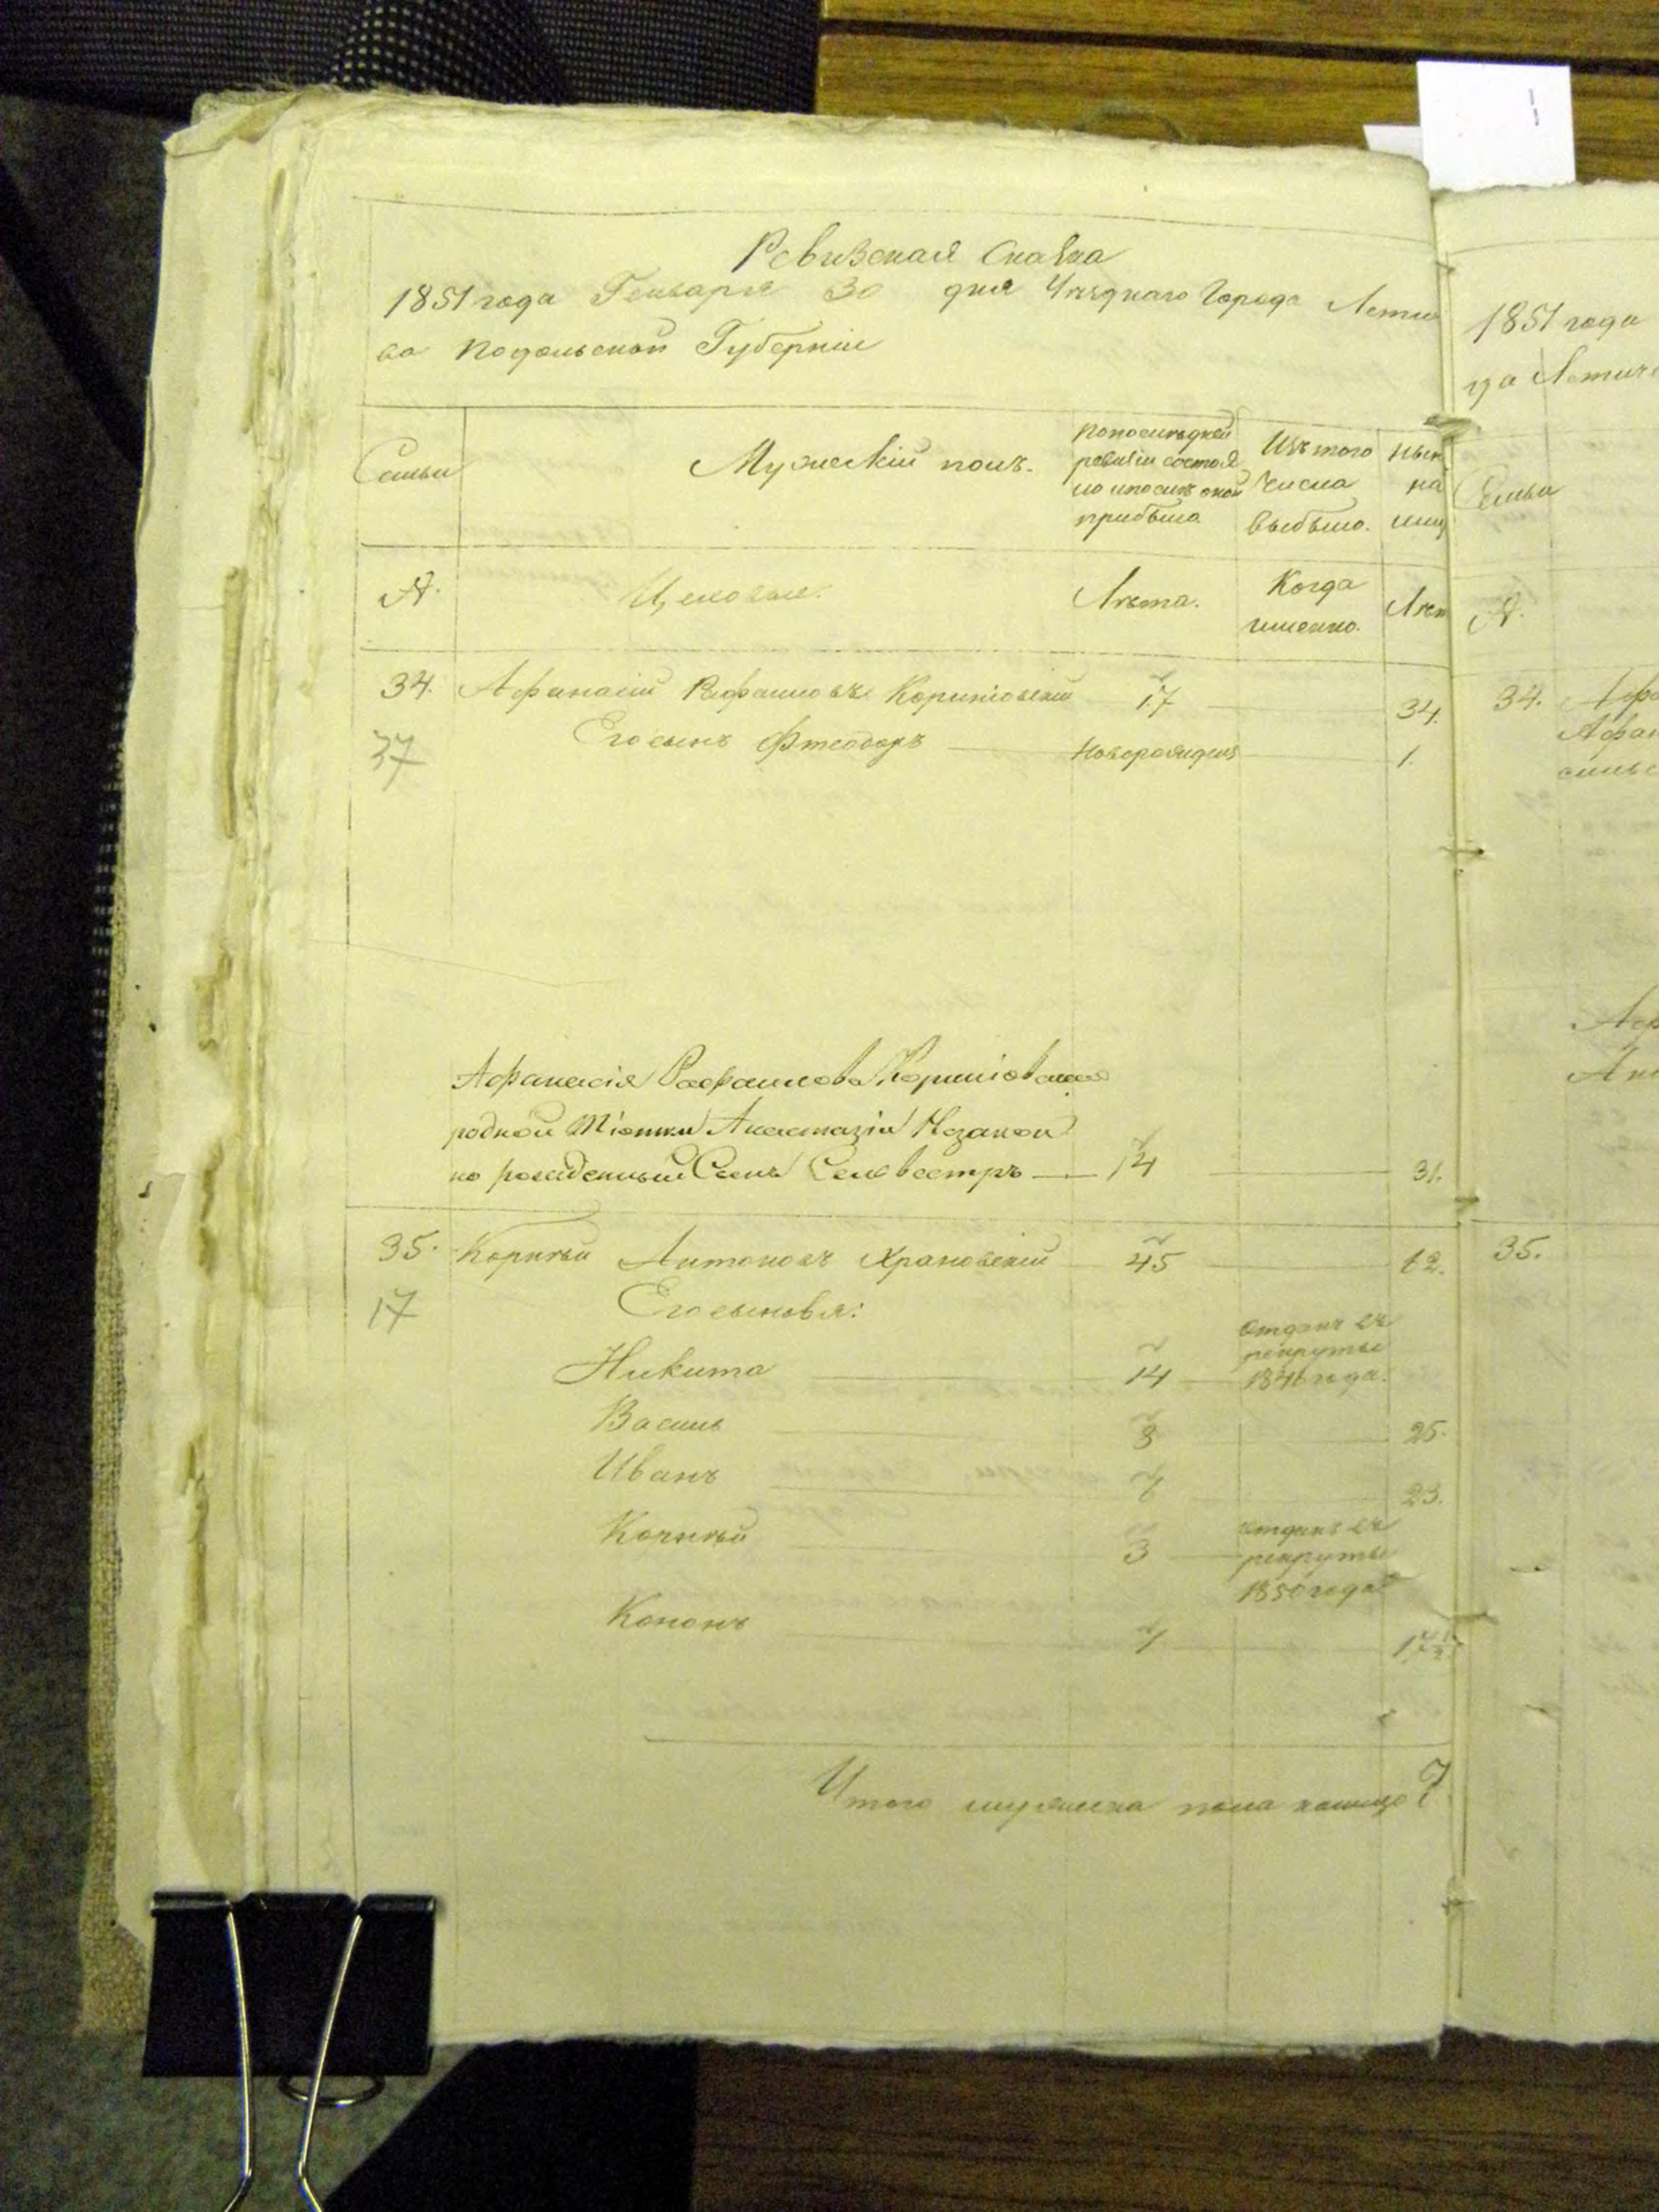 Ревизская Сказка
1851 года Генваря 30 дня Уѣзднаго Города Летиче
ва Подольской Губерніи
Семьи
Мужескій полъ.
по последней
ревизіи состоя
ло и после оной
прибыло.
Изъ того
числа
выбыло.
нын
на
лиц
№.
Цеховые.
Лѣта.
Когда
именно.
Лѣт
34. Афанасій Рафаиловъ 17 34.
37 Его сынъ Фтеодоръ Новорожденъ 1.
Афанасія Рафаилова
родной Тіотки Анастазіи
но рожденный Сынъ Сельвестръ 14 31.
35. Корнѣй Антоновъ Храновскій 45 62.
17 Его сыновья:
Никита 14 отданъ въ
рекруты
1841 года.
Василь 8 25.
Иванъ 6 23.
Корнѣй 3 отданъ въ
рекруты
1850 года
Кононъ 1/2 17 1/2
Итого мужеска пола налицо 7
1851 года
да Летиче
Семьи
№.
34. Афа
Афан
35.